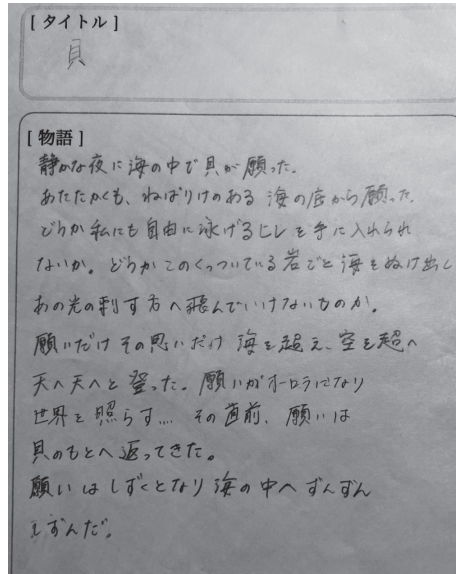 [タイトル]
貝
[物語]
静かな夜に海の中で貝が願った。
あたたかくも、ねばりけのある海の底から願った。
どうか私にも自由に泳げるヒレを手に入れられ
ないか。どうかこのくっついている岩ごと海をぬけ出し
あの光の刺す方へ飛んでいけないものか。
願いだけその思いだけ海を超え、空を超へ
天へ天へと登った。願いがオーロラになり
世界を照らす… その直前、願いは
貝のもとへ返ってきた。
願いはしずくとなり海の中へずんずん
しずんだ。